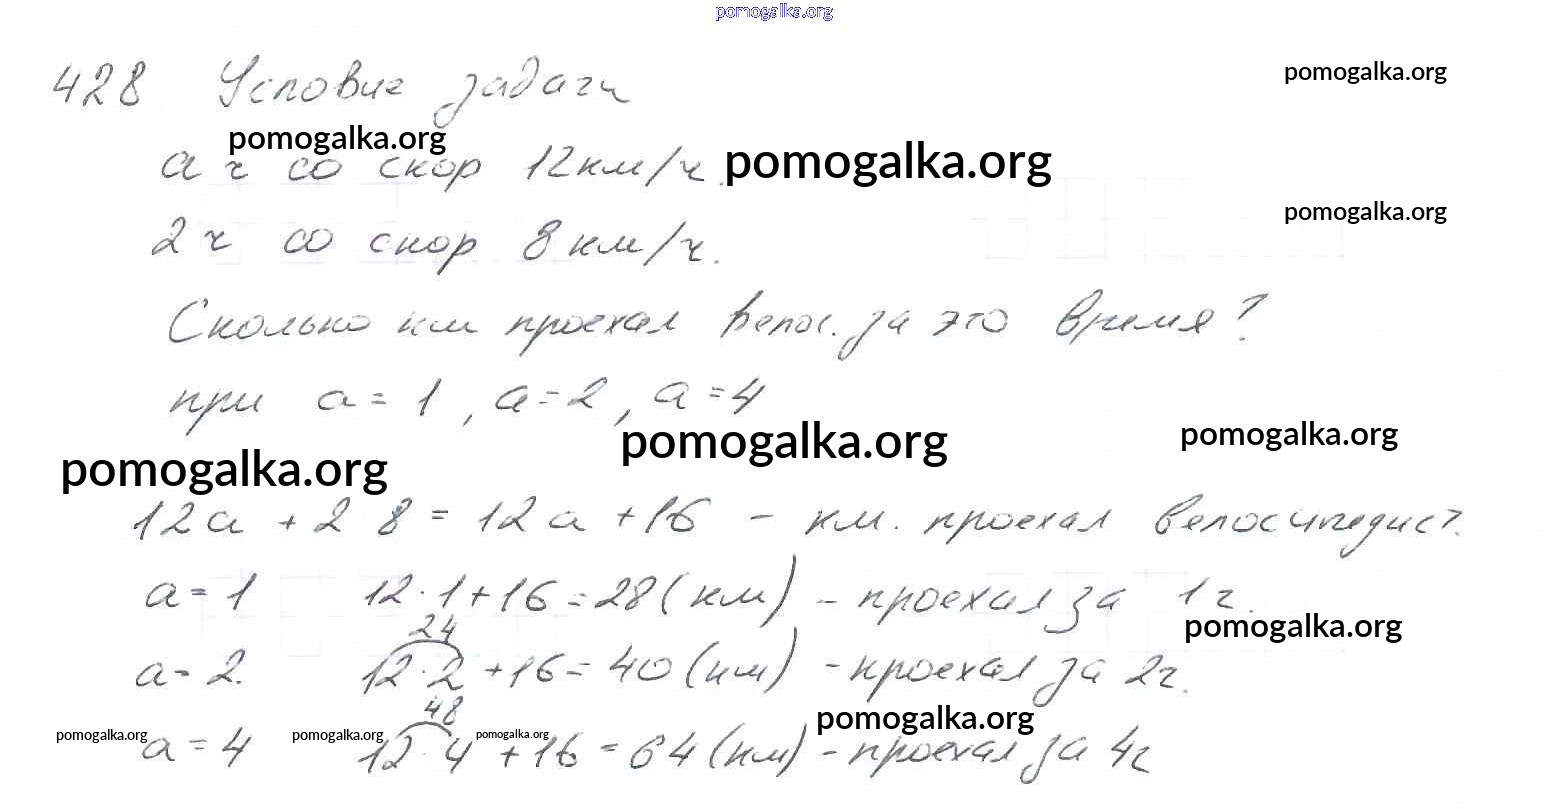 pomogalka.org
428 Условие задачи
pomogalka.org
pomogalka.org
а ч со скор 12 км/ч.
pomogalka.org
2 ч со скор 8 км/ч.
pomogalka.org
Сколько км проехал велос. за это время?
при а = 1, а = 2, а = 4
pomogalka.org
pomogalka.org
pomogalka.org
12а + 2 8 = 12а + 16 - км. проехал велосипедист.
а = 1 12·1 + 16 = 28 (км) - проехал за 1ч.
pomogalka.org
24
а = 2. 12·2 + 16 = 40 (км) - проехал за 2ч.
48
pomogalka.org
pomogalka.org pomogalka.org pomogalka.org
а = 4 12·4 + 16 = 64 (км) - проехал за 4ч